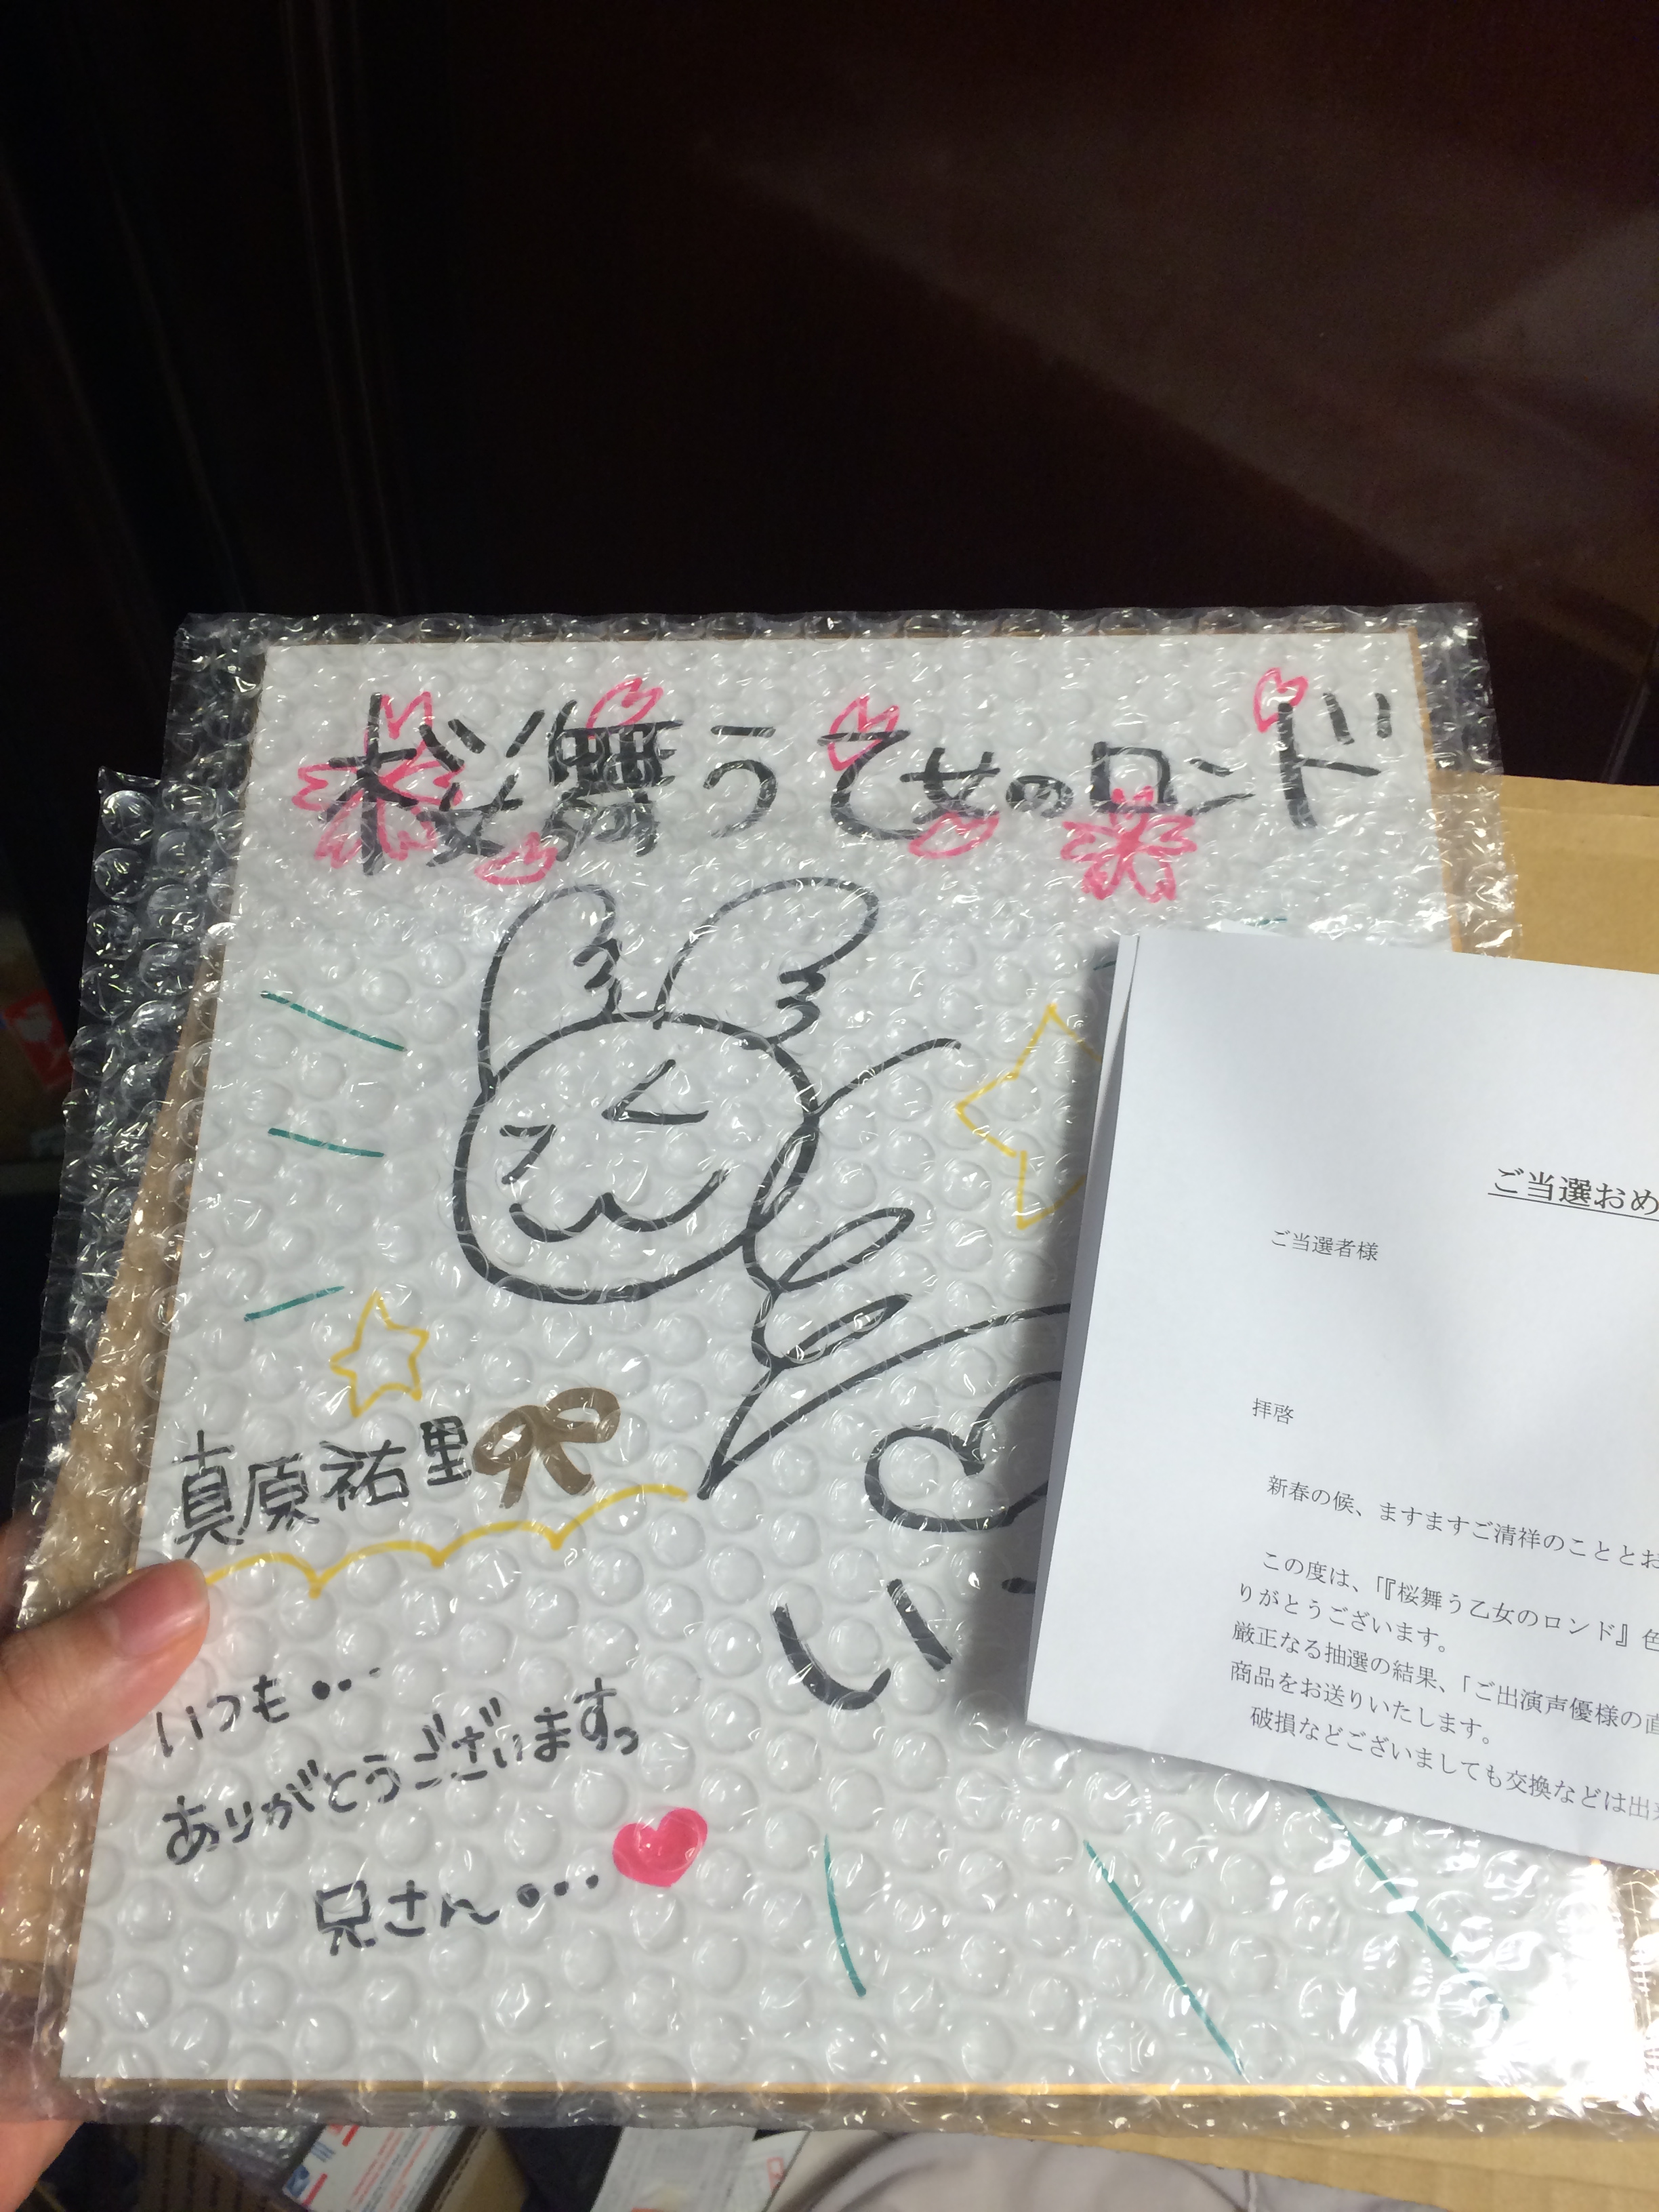 桜舞う乙女のロンド
真原祐里
いつも・・・
ありがとうございますっ
兄さん・・・
い
ご当選おめ
ご当選者様
拝啓
新春の候、ますますご清祥のこととお
この度は、「『桜舞う乙女のロンド』色
りがとうございます。
厳正なる抽選の結果、「ご出演声優様の直
商品をお送りいたします。
破損などございましても交換などは出来